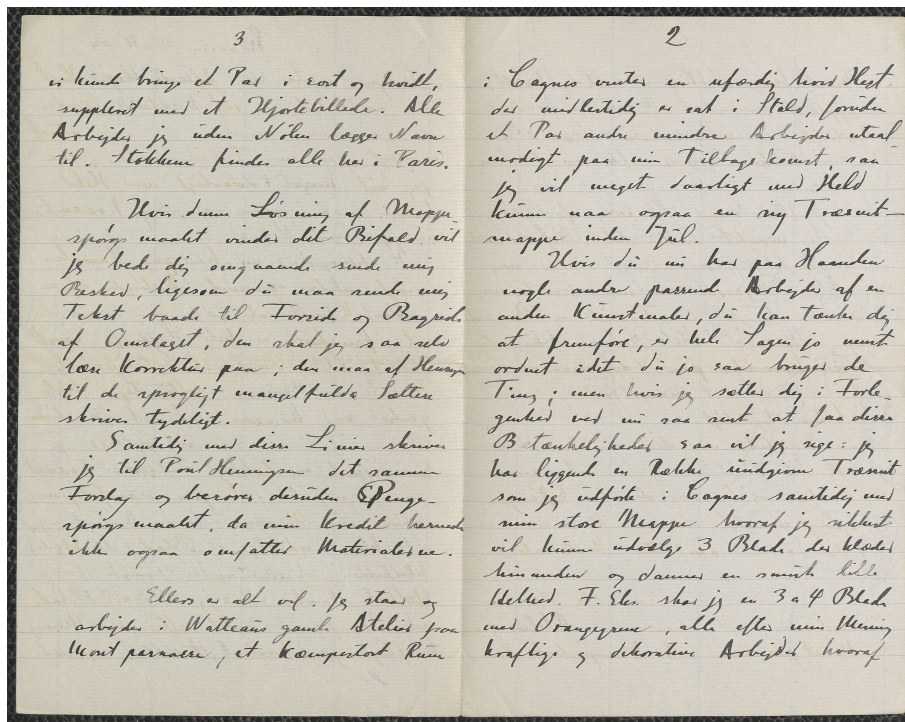 3
vi kunde bringe et Par i sort og hvidt,
suppleret med et Hjortebillede. Alle
Arbejder jeg uden Nölen lægger Navn
til. Stokkene findes alle her i Paris.
Hvis denne Løsning af Mappe-
spørgsmaalet vinder dit Bifald vil
jeg bede dig omgaaende sende mig
Besked, ligesom du maa sende mig
Tekst baade til Forside og Bagside
af Omslaget, den skal jeg saa selv
læse Korrektur paa; den maa af Hensyn
til de sprogligt mangelfulde Sættere
skrives tydeligt.
Samtidig med disse Linier skriver
jeg til Poul Henningsen det samme
Forslag og berører desuden Penge-
spørgsmaalet, da min Kredit hernede
ikke ogsaa omfatter Materialerne.
Ellers er alt vel. Jeg staar og
arbejder i Watteaus gamle Atelier paa
Montparnasse, et kæmpestort Rum
2
i Cagnes venter en ufærdig hvid Hest
der midlertidig er sat i Stald, foruden
et Par andre mindre Arbejder utaal
modigt paa min Tilbagekomst, saa
jeg vil meget daarligt med Held
kunne naa ogsaa en ny Træsnit-
mappe inden Jul.
Hvis du nu har paa Haanden
nogle andre passende Arbejder af en
anden Kunstmaler, du kan tænke dig
at fremføre, er hele Sagen jo nemt
ordnet idet du jo saa bruger de
Ting; men hvis jeg sætter dig i Forle-
genhed ved nu saa sent at faa disse
Betænkeligheder saa vil jeg sige: jeg
har liggende en Række udgivne Træsnit
som jeg udførte i Cagnes samtidig med
min store Mappe hvoraf jeg sikkert
vil kunne udvælge 3 Blade der klæder
hinanden og danner en smuk lille
Helhed. F. Eks. har jeg en 3 a 4 Blade
med Orangegrene, alle efter min Mening
kraftige og dekorative Arbejder hvoraf